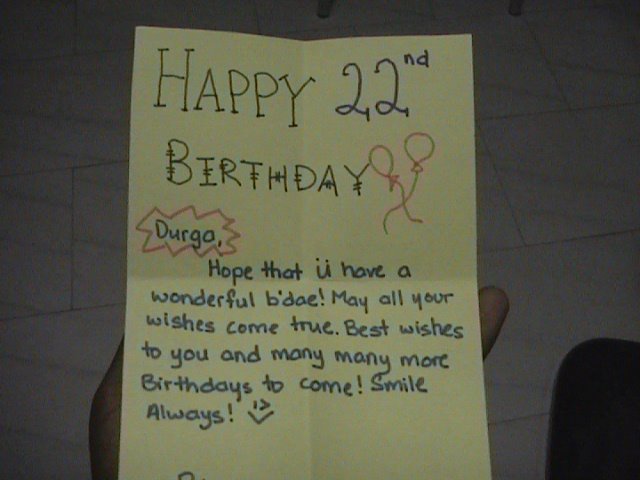 HAPPY 22nd
BIRTHDAY
Durga,
Hope that ü have a
wonderful b'dae! May all your
wishes come true. Best wishes
to you and many many more
Birthdays to come! Smile
Always!